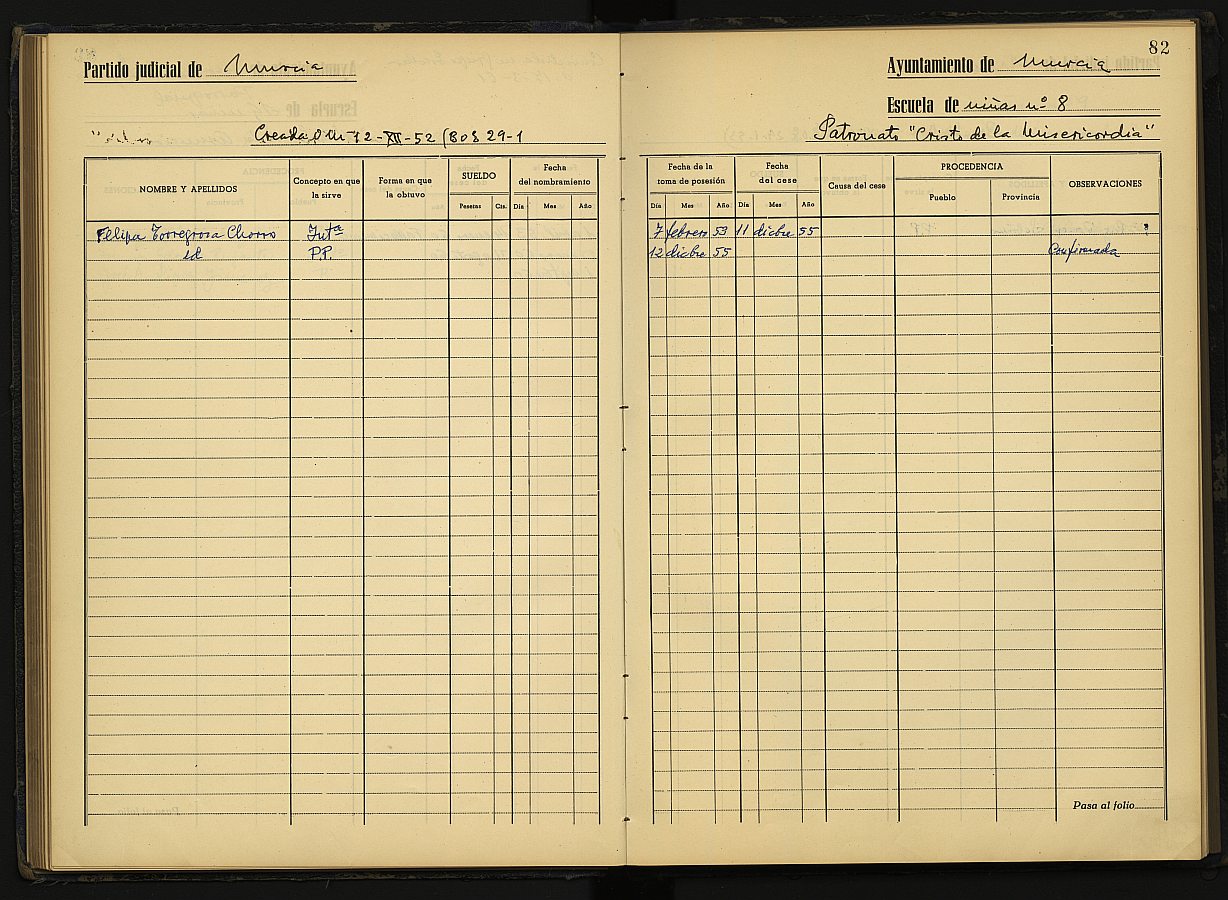 82
Partido judicial de Murcia
Ayuntamiento de Murcia
Escuela de niñas nº 8
Creada O M 12-XII-52 (BOE 29-1
Patronato "Cristo de la Misericordia"
NOMBRE Y APELLIDOS
Concepto en que la sirve
Forma en que la obtuvo
SUELDO
Pesetas Cts.
Fecha del nombramiento
Día Mes Año
Fecha de la toma de posesión
Día Mes Año
Fecha del cese
Día Mes Año
Causa del cese
PROCEDENCIA
Pueblo Provincia
OBSERVACIONES
Felipa Torregrosa Chorro Intª 7 febrero 53 11 dicbre 55 ?
id P.P. 12 dicbre 55 Confirmada
Pasa al folio